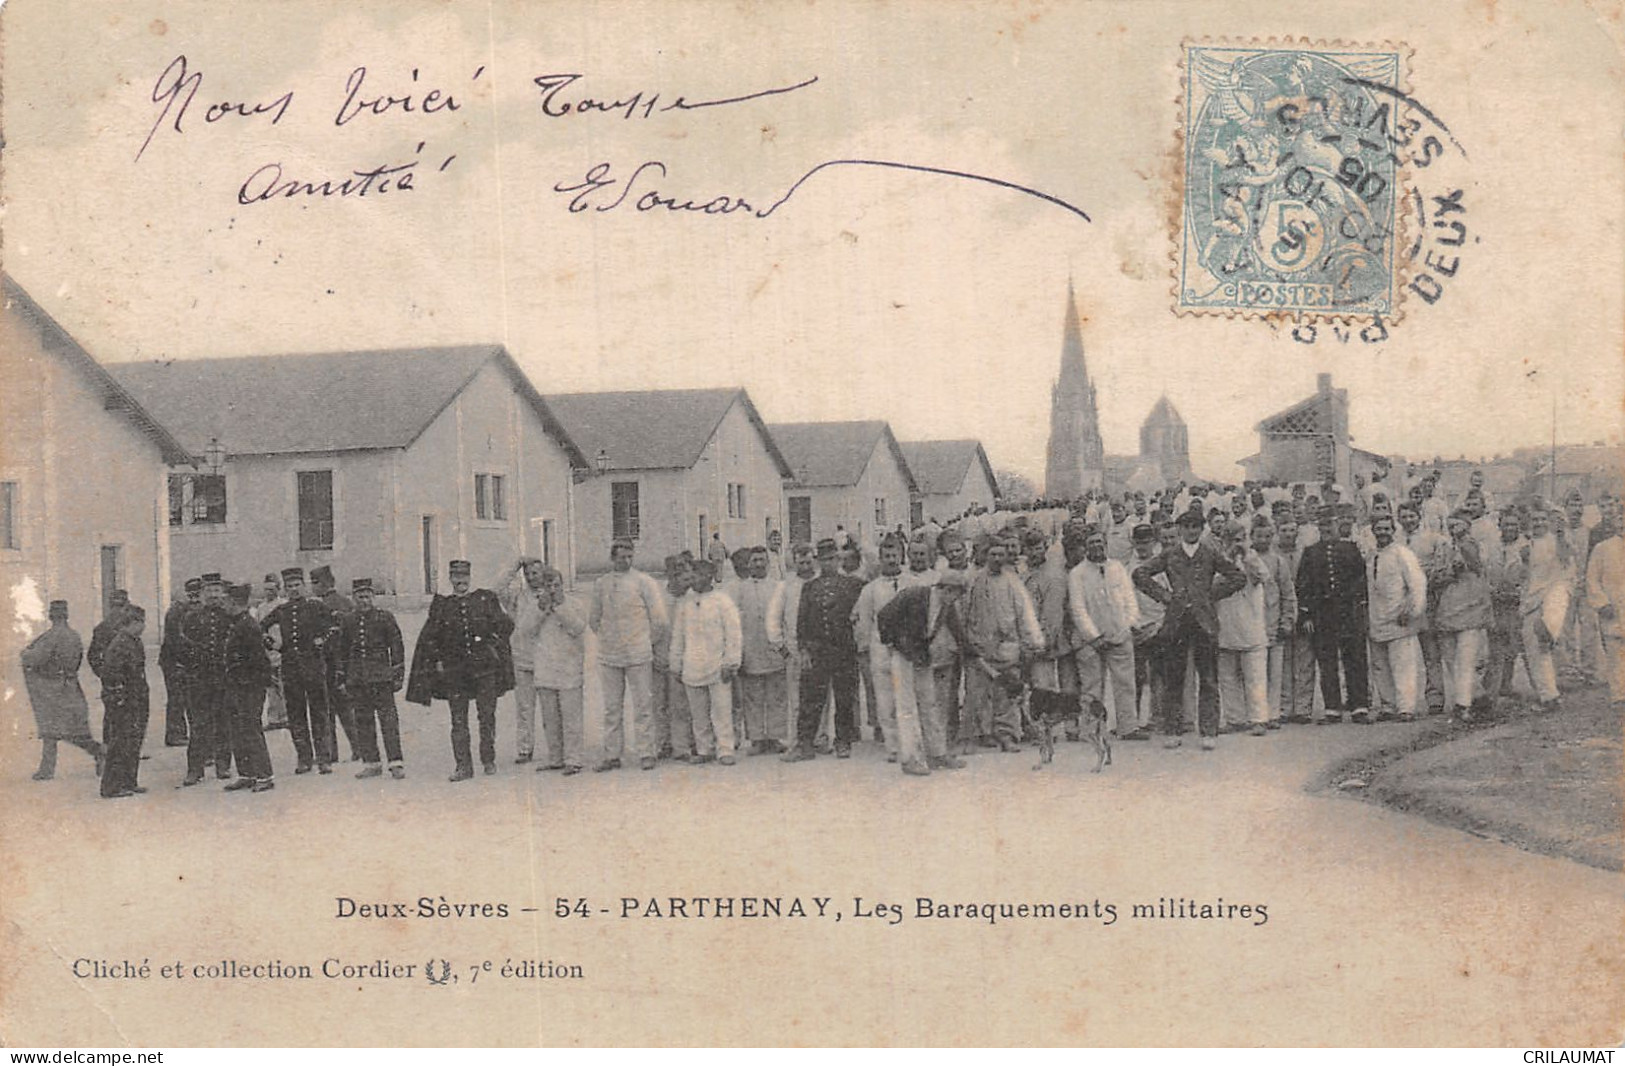 Nous Voici Tousse
Amitié Edouard
5
POSTES
DEUX SEVRES
05
Deux-Sèvres – 54 - PARTHENAY, Les Baraquements militaires
Cliché et collection Cordier, 7e édition
www.delcampe.net
CRILAUMAT